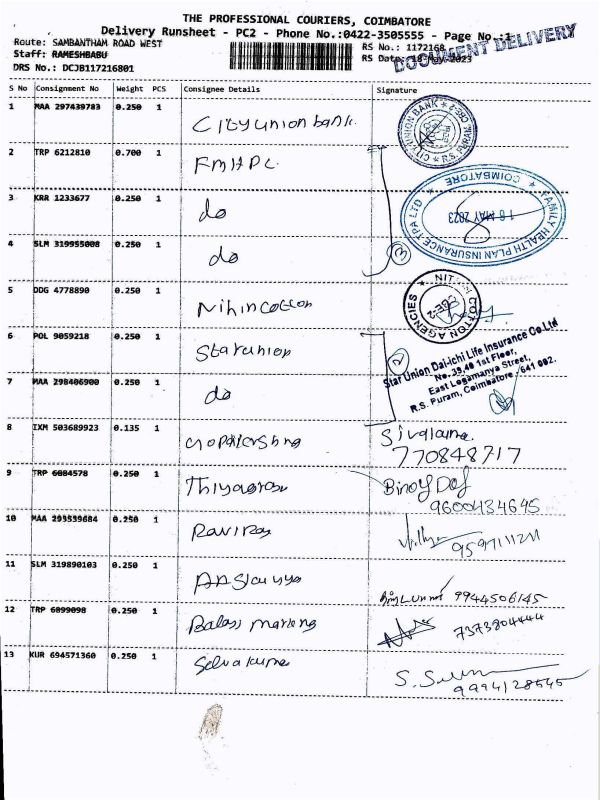 THE PROFESSIONAL COURIERS, COIMBATORE
Delivery Runsheet - PC2 - Phone No.:0422-3505555 - Page No.:1
DOCUMENT DELIVERY
Route: SAMBANTHAM ROAD WEST
RS No.: 1172168
Staff: RAMESHBABU
RS Date: 18-May-2023
DRS No.: DCJB117216801
S No Consignment No Weight PCS Consignee Details Signature
1 MAA 297439783 0.250 1 City union bank.
CITY UNION BANK R.S. PURAM
2 TRP 6212810 0.700 1 FMHPL
3 KRR 1233677 0.250 1 do
FAMILY HEALTH PLAN INSURANCE TPA LTD COIMBATORE
18 MAY 2023
4 SLM 319955008 0.250 1 do
3
5 DDG 4778890 0.250 1 Nihin cotton
COTTON AGENCIES
6 POL 9059218 0.250 1 Star union
2
Star Union Dai-ichi Life Insurance Co.Ltd
No. 39,40 1st Floor,
East Logamanya Street,
R.S. Puram, Coimbatore - 641 002.
7 MAA 298406900 0.250 1 do
8 IXM 503689923 0.135 1
770848717
9 TRP 6084578 0.250 1
Binoy
9600434645
10 MAA 293539684 0.250 1 Raviraj
11 SLM 319890103 0.250 1
9944506145
12 TRP 6099098 0.250 1
7373804444
13 KUR 694571360 0.250 1 Selvakumar
9994128545